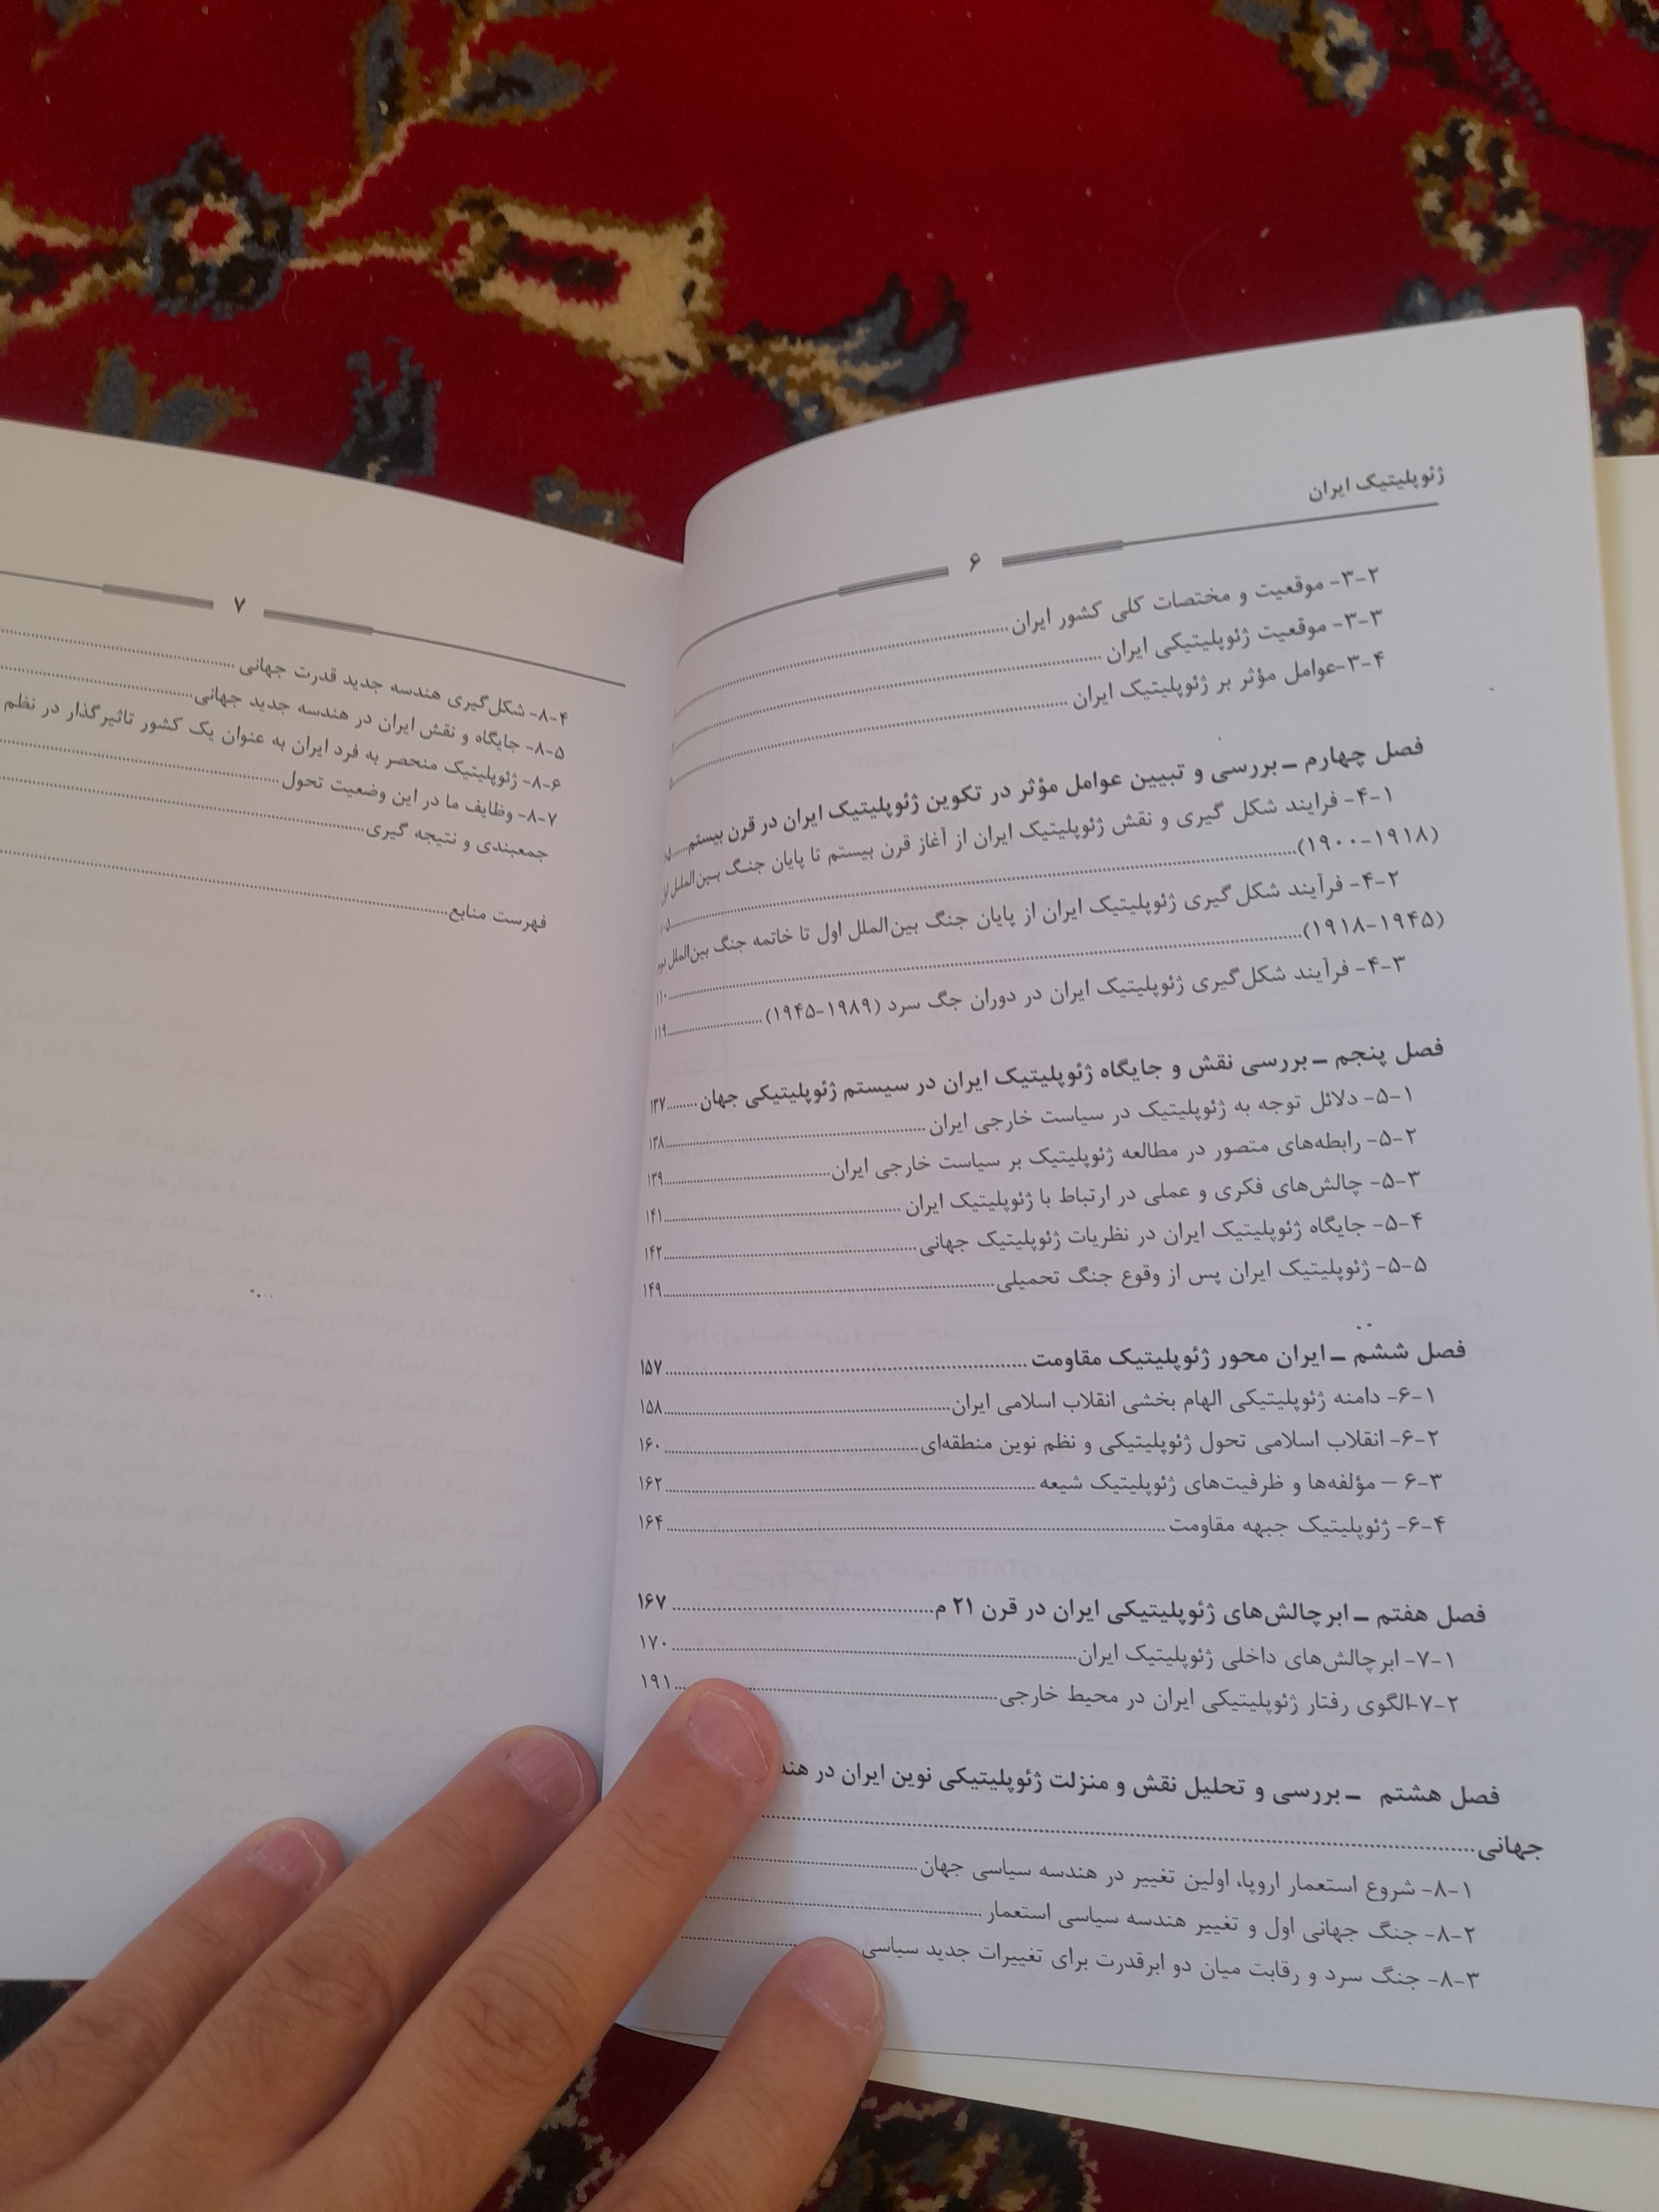 ژئوپلیتیک ایران
۶
۳-۲- موقعیت و مختصات کلی کشور ایران
۳-۳- موقعیت ژئوپلیتیکی ایران
۳-۴-عوامل مؤثر بر ژئوپلیتیک ایران
فصل چهارم ـ بررسی و تبیین عوامل مؤثر در تکوین ژئوپلیتیک ایران در قرن بیستم
۴-۱- فرایند شکل گیری و نقش ژئوپلیتیک ایران از آغاز قرن بیستم تا پایان جنگ بین‌الملل اول
(۱۹۰۰-۱۹۱۸)..........۱۰۵
۴-۲- فرآیند شکل‌گیری ژئوپلیتیک ایران از پایان جنگ بین‌الملل اول تا خاتمه جنگ بین‌الملل دوم
(۱۹۱۸-۱۹۴۵)..........۱۱۰
۴-۳- فرآیند شکل‌گیری ژئوپلیتیک ایران در دوران جگ سرد (۱۹۴۵-۱۹۸۹)..........۱۱۹
فصل پنجم ـ بررسی نقش و جایگاه ژئوپلیتیک ایران در سیستم ژئوپلیتیکی جهان..........۱۳۷
۵-۱- دلائل توجه به ژئوپلیتیک در سیاست خارجی ایران..........۱۳۸
۵-۲- رابطه‌های متصور در مطالعه ژئوپلیتیک بر سیاست خارجی ایران..........۱۳۹
۵-۳- چالش‌های فکری و عملی در ارتباط با ژئوپلیتیک ایران..........۱۴۱
۵-۴- جایگاه ژئوپلیتیک ایران در نظریات ژئوپلیتیک جهانی..........۱۴۲
۵-۵- ژئوپلیتیک ایران پس از وقوع جنگ تحمیلی..........۱۴۹
فصل ششم ـ ایران محور ژئوپلیتیک مقاومت..........۱۵۷
۶-۱- دامنه ژئوپلیتیکی الهام بخشی انقلاب اسلامی ایران..........۱۵۸
۶-۲- انقلاب اسلامی تحول ژئوپلیتیکی و نظم نوین منطقه‌ای..........۱۶۰
۶-۳ – مؤلفه‌ها و ظرفیت‌های ژئوپلیتیک شیعه..........۱۶۲
۶-۴- ژئوپلیتیک جبهه مقاومت..........۱۶۴
فصل هفتم ـ ابرچالش‌های ژئوپلیتیکی ایران در قرن ۲۱ م..........۱۶۷
۷-۱- ابرچالش‌های داخلی ژئوپلیتیک ایران..........۱۷۰
۷-۲-الگوی رفتار ژئوپلیتیکی ایران در محیط خارجی..........۱۹۱
فصل هشتم ـ بررسی و تحلیل نقش و منزلت ژئوپلیتیکی نوین ایران در
جهانی
۸-۱- شروع استعمار اروپا، اولین تغییر در هندسه سیاسی جهان
۸-۲- جنگ جهانی اول و تغییر هندسه سیاسی استعمار
۸-۳- جنگ سرد و رقابت میان دو ابرقدرت برای تغییرات جدید سیاسی
۷
۸-۴- شکل‌گیری هندسه جدید قدرت جهانی
۸-۵- جایگاه و نقش ایران در هندسه جدید جهانی
۸-۶- ژئوپلیتیک منحصر به فرد ایران به عنوان یک کشور تاثیرگذار در نظم
۸-۷- وظایف ما در این وضعیت تحول
جمعبندی و نتیجه گیری
فهرست منابع